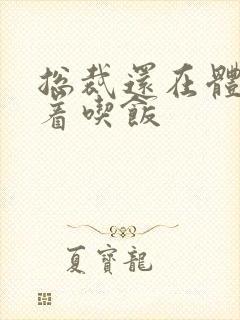 总裁還在體
着喫飯
夏寶龍